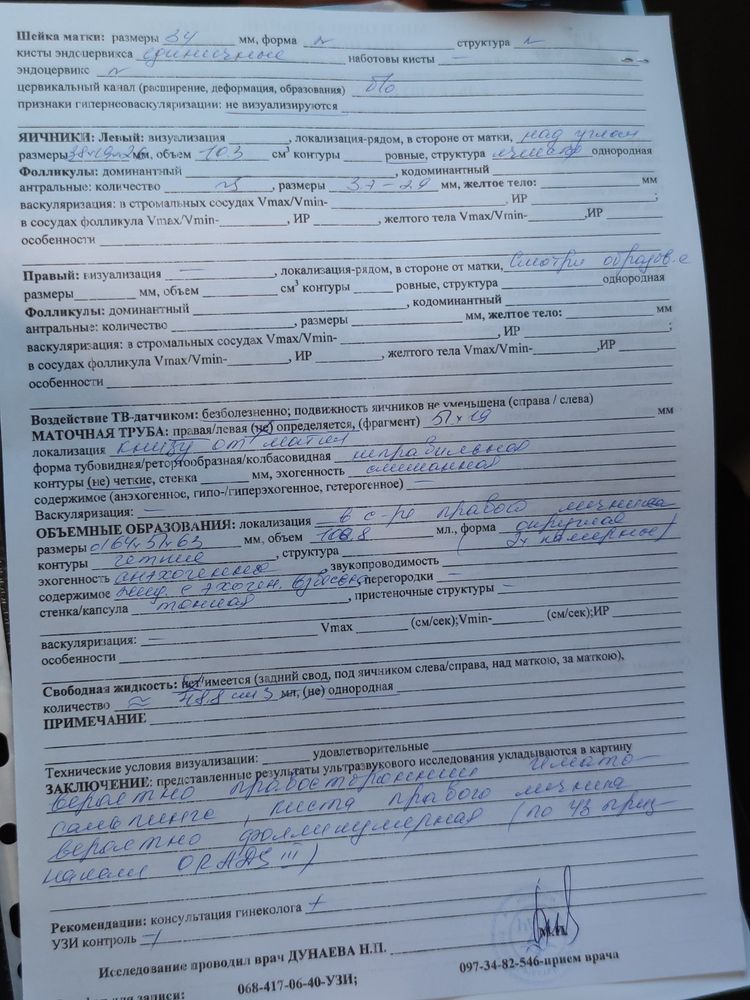 Шейка матки: размеры 34 мм, форма N структура N
кисты эндоцервикса единичные наботовы кисты —
эндоцервикс N
цервикальный канал (расширение, деформация, образования) б/о
признаки гиперневаскуляризации: не визуализируются
ЯИЧНИКИ: Левый: визуализация , локализация-рядом, в стороне от матки, над углом
размеры 38х19х26 мм, объем 10.3 см³ контуры ровные, структура однородная
Фолликулы: доминантный , кодоминантный
антральные: количество N3 , размеры 3.7-2.9 мм, желтое тело: мм
васкуляризация: в стромальных сосудах Vmax/Vmin- , ИР ;
в сосудах фолликула Vmax/Vmin- , ИР , желтого тела Vmax/Vmin- ,ИР ;
особенности
Правый: визуализация — , локализация-рядом, в стороне от матки, Смотри образов.е
размеры мм, объем см³ контуры ровные, структура однородная
Фолликулы: доминантный , кодоминантный
антральные: количество , размеры мм, желтое тело: мм
васкуляризация: в стромальных сосудах Vmax/Vmin- , ИР ;
в сосудах фолликула Vmax/Vmin- , ИР , желтого тела Vmax/Vmin- ,ИР ;
особенности
Воздействие ТВ-датчиком: безболезненно; подвижность яичников не уменьшена (справа / слева)
МАТОЧНАЯ ТРУБА: правая/левая (не) определяется, (фрагмент) 51х19 мм
локализация книзу от матки
форма тубовидная/ретортообразная/колбасовидная неправильная
контуры (не) четкие, стенка мм, эхогенность смешанная
содержимое (анэхогенное, гипо-/гиперэхогенное, гетерогенное) —
Васкуляризация: —
ОБЪЕМНЫЕ ОБРАЗОВАНИЯ: локализация в с-ре правого яичника
размеры d 64х51х63 мм, объем 108.8 мл., форма округлая
контуры четкие , структура (2х камерное)
эхогенность анэхогенное , звукопроводимость
содержимое жид. с эхоген. взвесью перегородки —
стенка/капсула тонкая , пристеночные структуры —
Vmax (см/сек);Vmin- (см/сек);ИР
васкуляризация: —
особенности
Свободная жидкость: нет/имеется (задний свод, под яичником слева/справа, над маткою, за маткою),
количество ≈ 48.8 см3 мл, (не) однородная
ПРИМЕЧАНИЕ
Технические условия визуализации: удовлетворительные
ЗАКЛЮЧЕНИЕ: представленные результаты ультразвукового исследования укладываются в картину
вероятно правосторонний гемато-
сальпинкс, киста правого яичника
вероятно фолликулярная (по УЗ приз-
накам ORADS III)
Рекомендации: консультация гинеколога +
УЗИ контроль +
М.П.
Исследование проводил врач ДУНАЕВА Н.П.
068-417-06-40-УЗИ; 097-34-82-546-прием врача